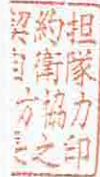 担隊力印
約衛協之
契自方